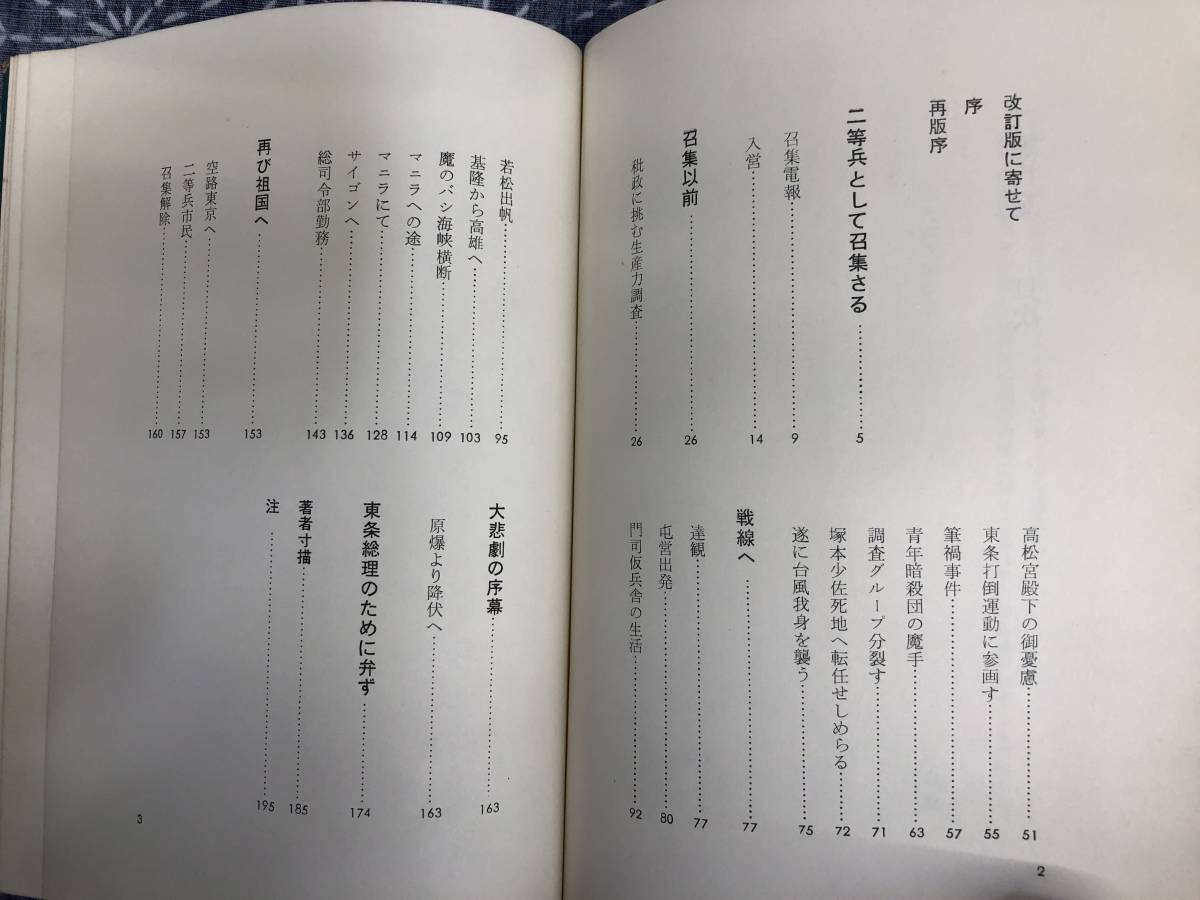 改訂版に寄せて
序
再版序
二等兵として召集さる……………5
召集電報……………9
入営……………14
召集以前……………26
秕政に挑む生産力調査……………26
高松宮殿下の御憂慮……………51
東条打倒運動に参画す……………55
筆禍事件……………57
青年暗殺団の魔手……………63
調査グループ分裂す……………71
塚本少佐死地へ転任せしめらる……………72
遂に台風我身を襲う……………75
戦線へ……………77
達観……………77
屯営出発……………80
門司仮兵舎の生活……………92
2
若松出帆……………95
基隆から高雄へ……………103
魔のバシ海峡横断……………109
マニラへの途……………114
マニラにて……………128
サイゴンへ……………136
総司令部勤務……………143
再び祖国へ……………153
空路東京へ……………153
二等兵市民……………157
召集解除……………160
大悲劇の序幕……………163
原爆より降伏へ……………163
東条総理のために弁ず……………174
著者寸描……………185
注……………195
3